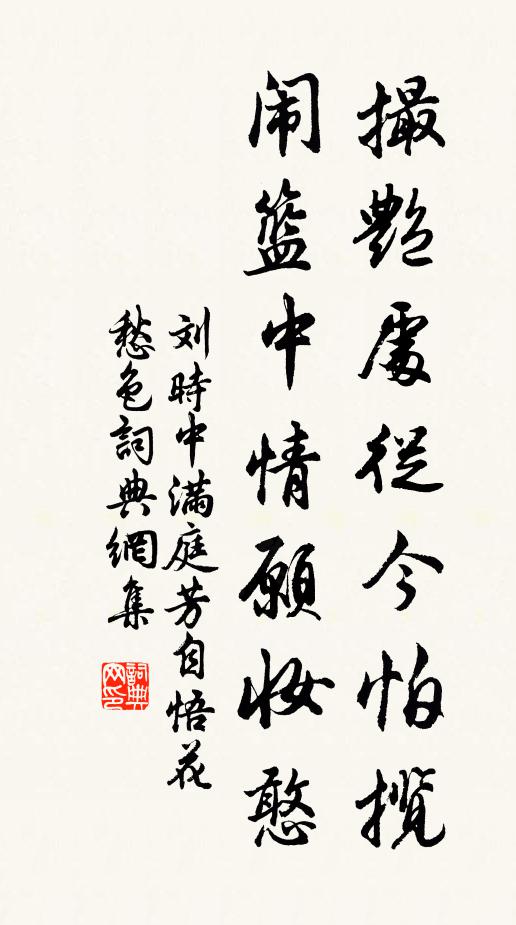 撮艷處從今怕攬
闹籃中情願妝憨
刘時中满庭芳自悟花
愁色詞典網集
詞典网印